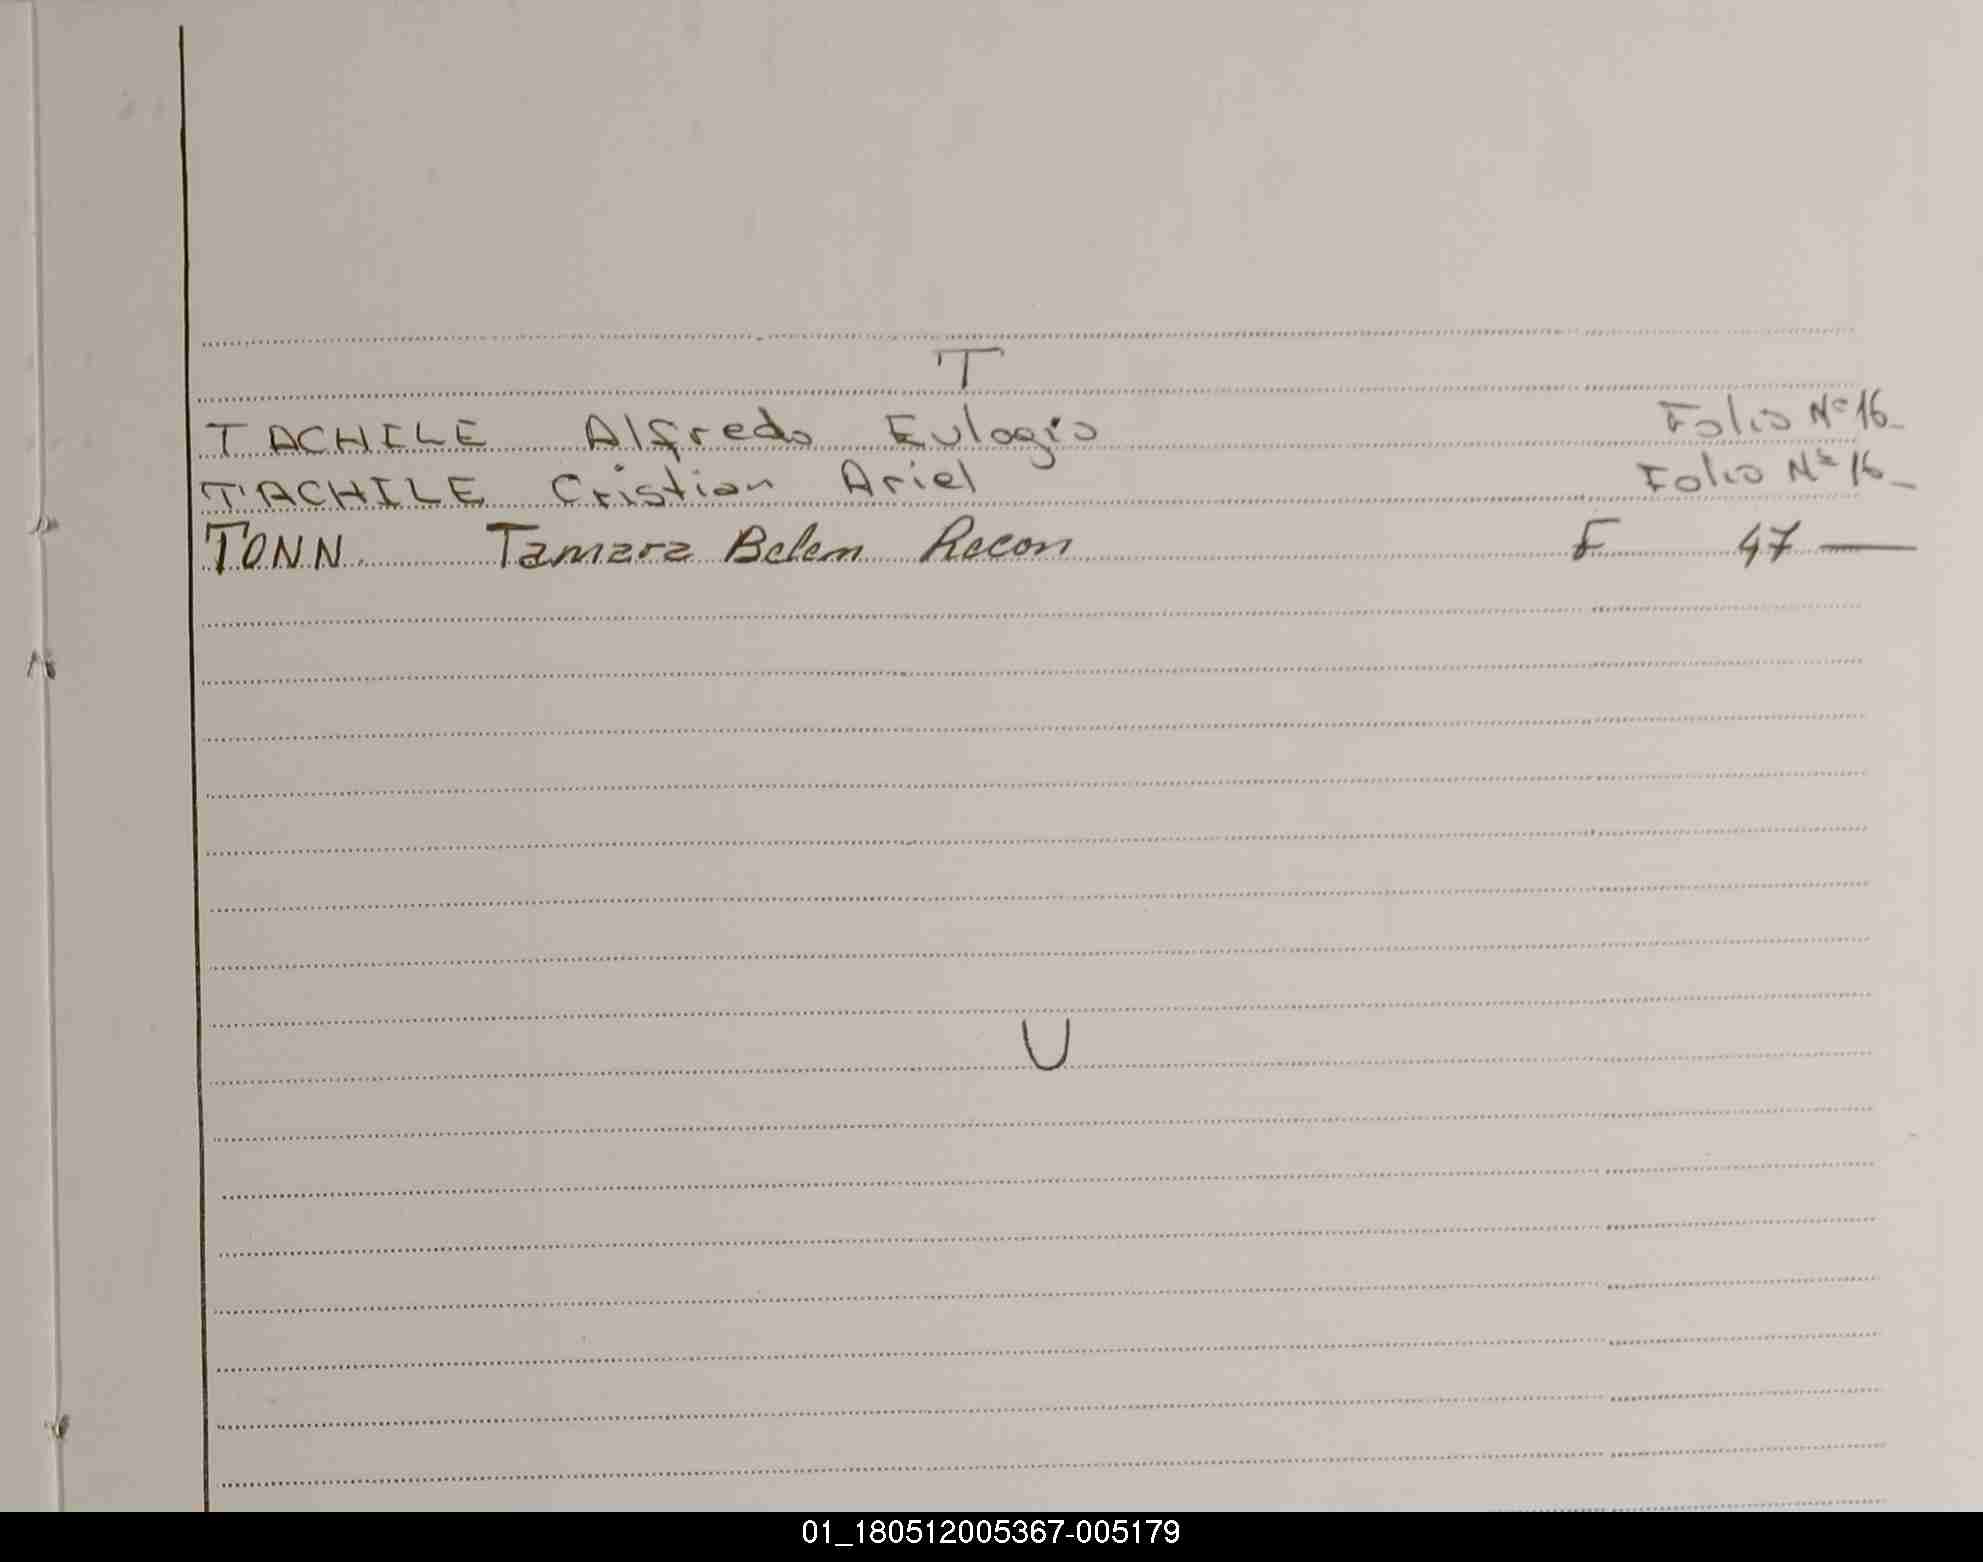 T
TACHILE Alfredo Eulogio Folio Nº 16_
TACHILE Cristian Ariel Folio Nº 16_
TONN. Tamara Belem Recon F 47 —
U
01_180512005367-005179